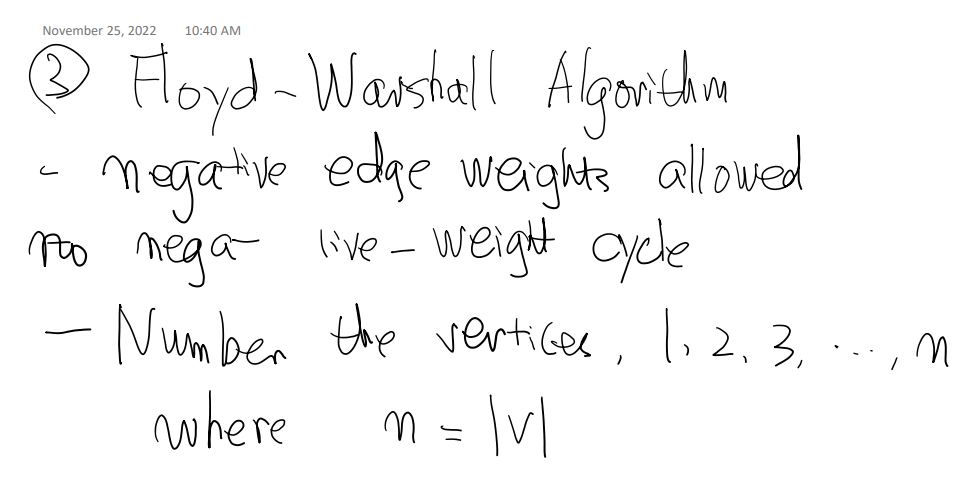 November 25, 2022 10:40 AM
③ Floyd-Warshall Algorithm
- negative edge weights allowed
no nega- tive-weight cycle
- Number the vertices, 1, 2, 3, ..., n
where n = |V|